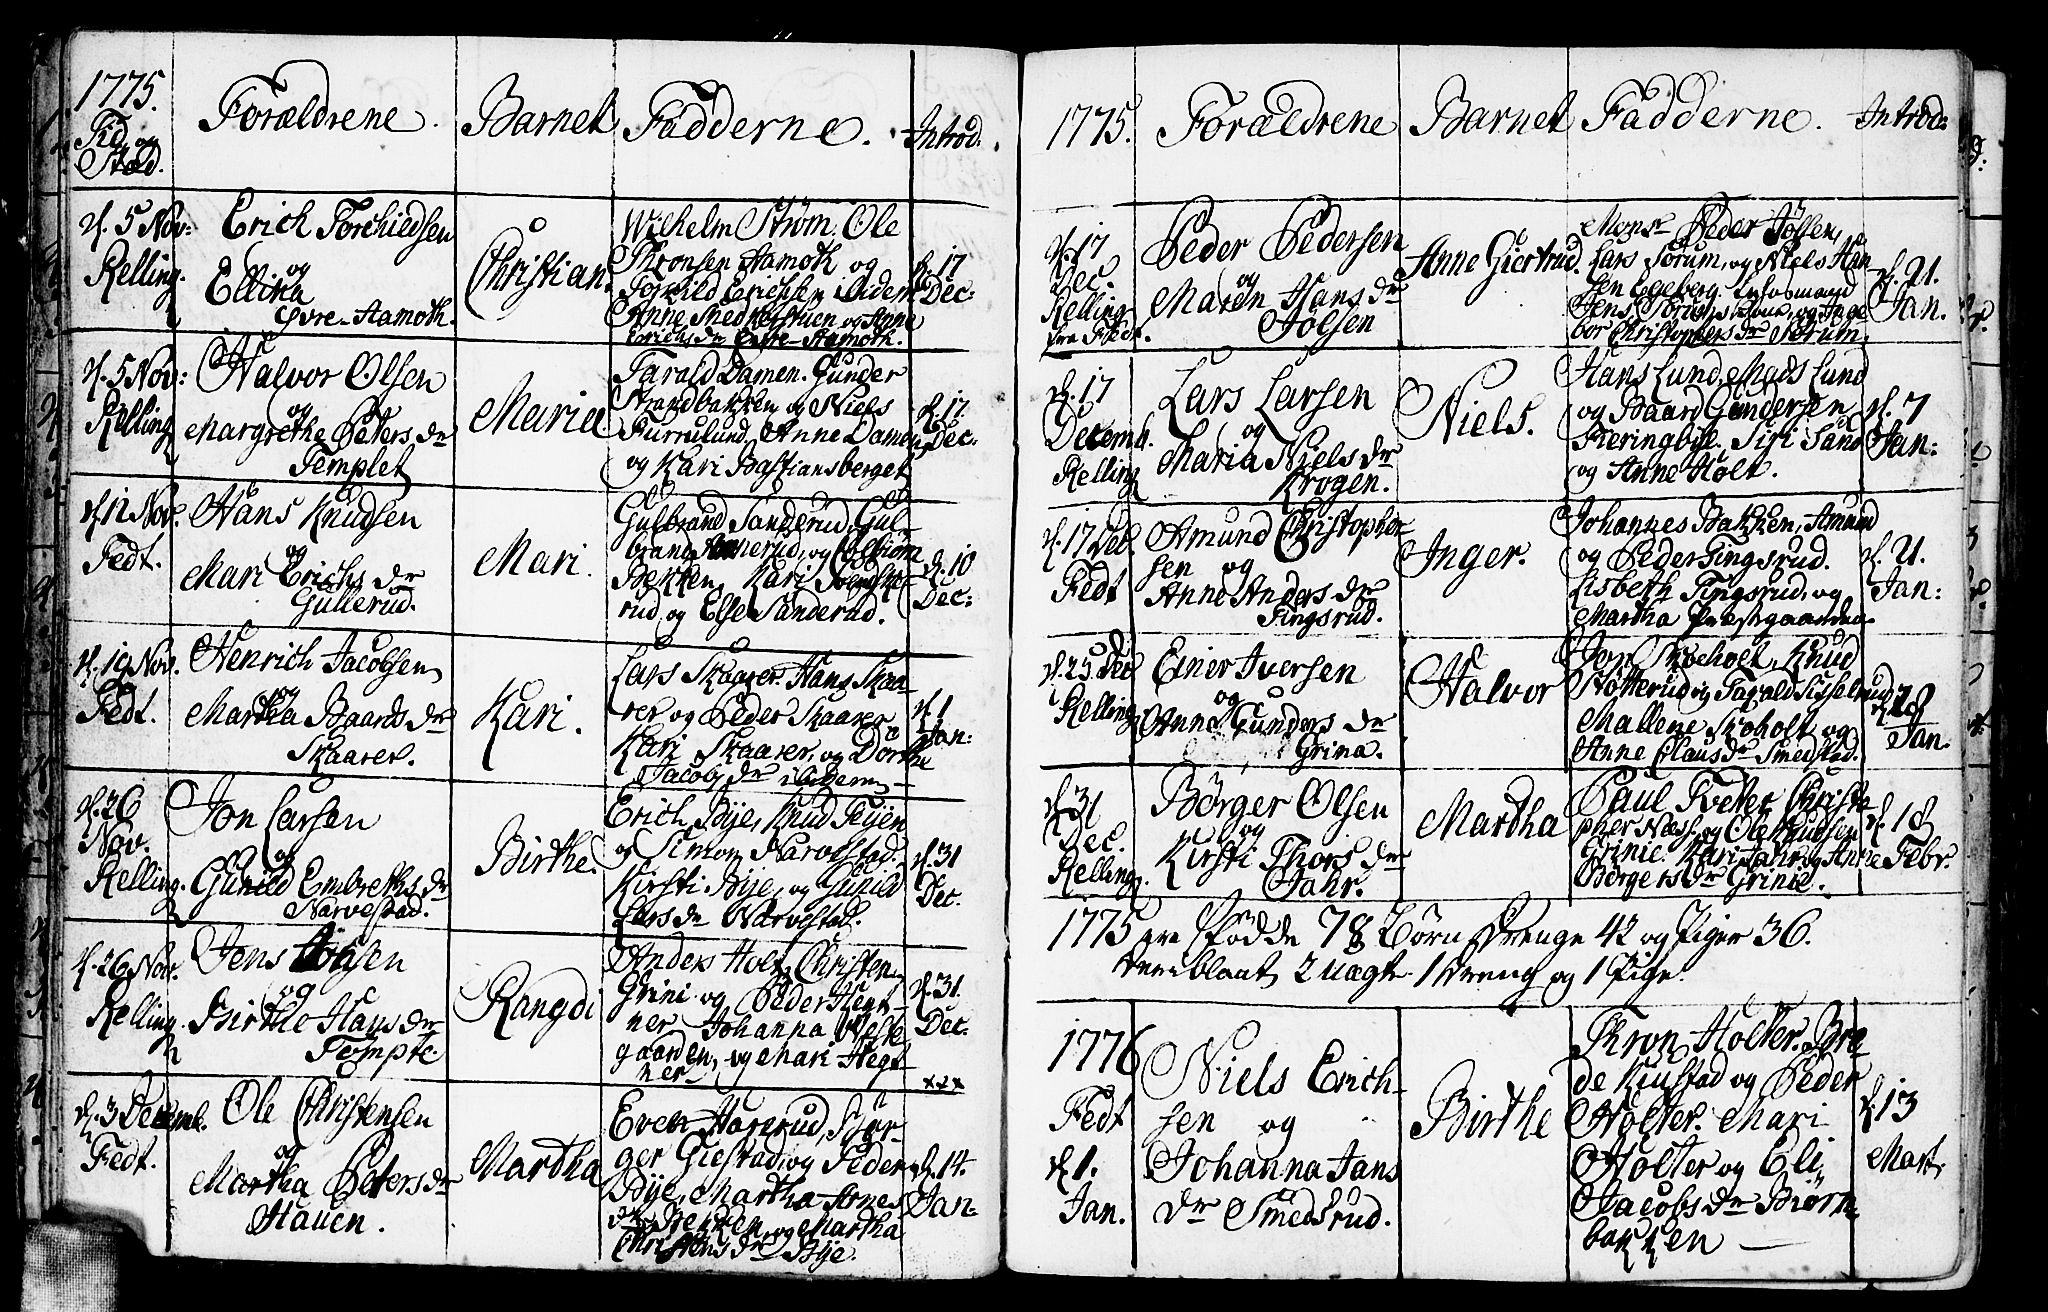 1775.
Tid og
Stæd.
Forældrene.
Barnet
Fadderne.
Introd:
d. 5 Nov:
Relling.
Erich Torchildsen
og
Ellika
Øvre-Aamoth.
Christian.
Wilhelm Strøm. Ole
Thronsen Aamoth og
Torkild Erichsen
Anne og Anne
Erichs dr Øvre-Aamoth.
d. 17
Dec:
d. 5 Nov:
Relling
Halvor Olsen
og
Margrethe Peters dr
Templet
Maria.
Tarald Damen. Gunder
Strandbakken og Niels
Furrulund. Anne Damen
og Kari Bastiansberget
d. 17.
Dec:
d. 12 Nov.
Fedt.
Hans Knudsen
og
Mari Erichs dr
Gullerud.
Mari.
Gulbrand Sanderud, Gul-
brand og
Bekken, Kari
rud, og Else Sanderud.
d. 10
Dec:
d. 19 Nov.
Fedt.
Henrich Jacobsen
og
Martha Baards dr
Skaarer.
Kari.
Lars Skaarer. Hans Skaa-
rer og Peder Skaarer
Kari Skaarer, og Dorthe
Jacobs dr
d. 1
Jan:
d. 26
Nov.
Relling.
Jon Larsen
og
Gunild Embreths dr
Narvestad.
Birthe.
Erich Bye, Knud Teijen
og Simon Narvestad.
Kirsti Bije, og Gunild
Lars dr Narvestad.
d. 31
Dec.
d. 26 Nov.
Relling.
Jens
og
Birthe Hans dr
Temple.
Rangdi
Anders Holt, Christen
Grini og Peder Hent-
ner Johanna Vestre
gaarden, og Mari Hegt-
ner
d. 31.
Dec.
xxx
d. 3 Decemb.
Fedt.
Ole Christensen
og
Martha Peters dr
Hauen.
Martha
Even Harerud, Bør-
ger Giestad og Peder
Bije, Martha Arnes
dr Bekken, og Martha
Christens dr Bije.
d. 14.
Jan:
1775.
Forældrene
Barnet
Fadderne.
Introd:
d. 17
Dec.
Relling
fra Fedt.
Peder Pedersen
og
Maren Hans dr
Jølsen
Anne Giertrud.
Monsr Peder Jølsen,
Lars Sørum, og Niels Han
sen Egeberg.
Jens Sørums kone, og Inge
bor Christophers dr Sørum.
d. 21.
Jan.
d. 17
Decemb.
Relling
Lars Larsen
og
Maria Niels dr
Krogen.
Niels.
Hans Lund, Mads Lund
og Baard Gundersen
Fieringbije. Siri Sand
og Anne Holt.
d. 7
Jan:
d. 17 Dec
Fedt
Amund Christopher
sen og
Anne Anders dr
Tingsrud.
Inger.
Johannes Bakken, Amund
og Peder Tingsrud.
Lisbeth Tingsrud, og
Martha Præstgaarden.
d. 21.
Jan:
d. 25 Dec
Relling
Einer Iversen
og
Anne Gunders dr
Grina.
Halvor
Jon Skoholt, Knud
Støtterud og Tarald Sisselrud
Mallene Skoholt og
Anne Claus dr Smedstad.
d. 28
Jan.
d. 31
Dec.
Relling.
Børger Olsen
og
Kirsti Thors dr
Jahr.
Martha
Paul Tveter, Christo
pher Næss. og Ole Knudsen
Grinie. Kari Jahr og Anne
Børgers dr Grinie.
d. 18
Febr.
1775 ere fødde 78 Børn Drenge 42 og Piger 36.
deriblant 2 uægte 1 Dreng og 1 Pige.
1776
Fedt
d. 1.
Jan.
Niels Erich-
sen og
Johanna Jans
dr Smedsrud.
Birthe
Thron Holter. Bre
de Kiustad og Peder
Holter. Mari
Holter og Eli
Jacobs dr Biørn-
bakken
d. 13
Mart.